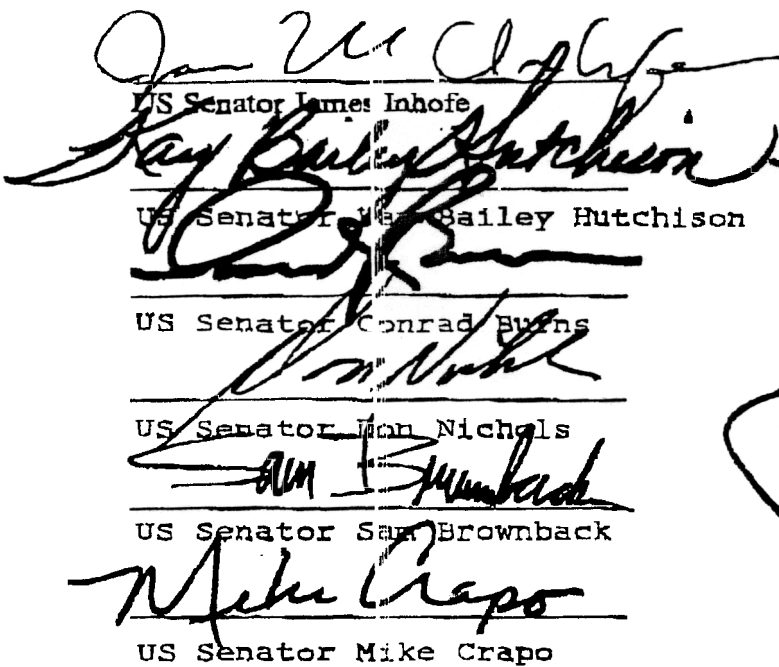 US Senator James Inhofe
Kay Bailey Hutchison
US Senator Kay Bailey Hutchison
US Senator Conrad Burns
US Senator Don Nichols
Sam Brownback
US Senator Sam Brownback
Mike Crapo
US Senator Mike Crapo